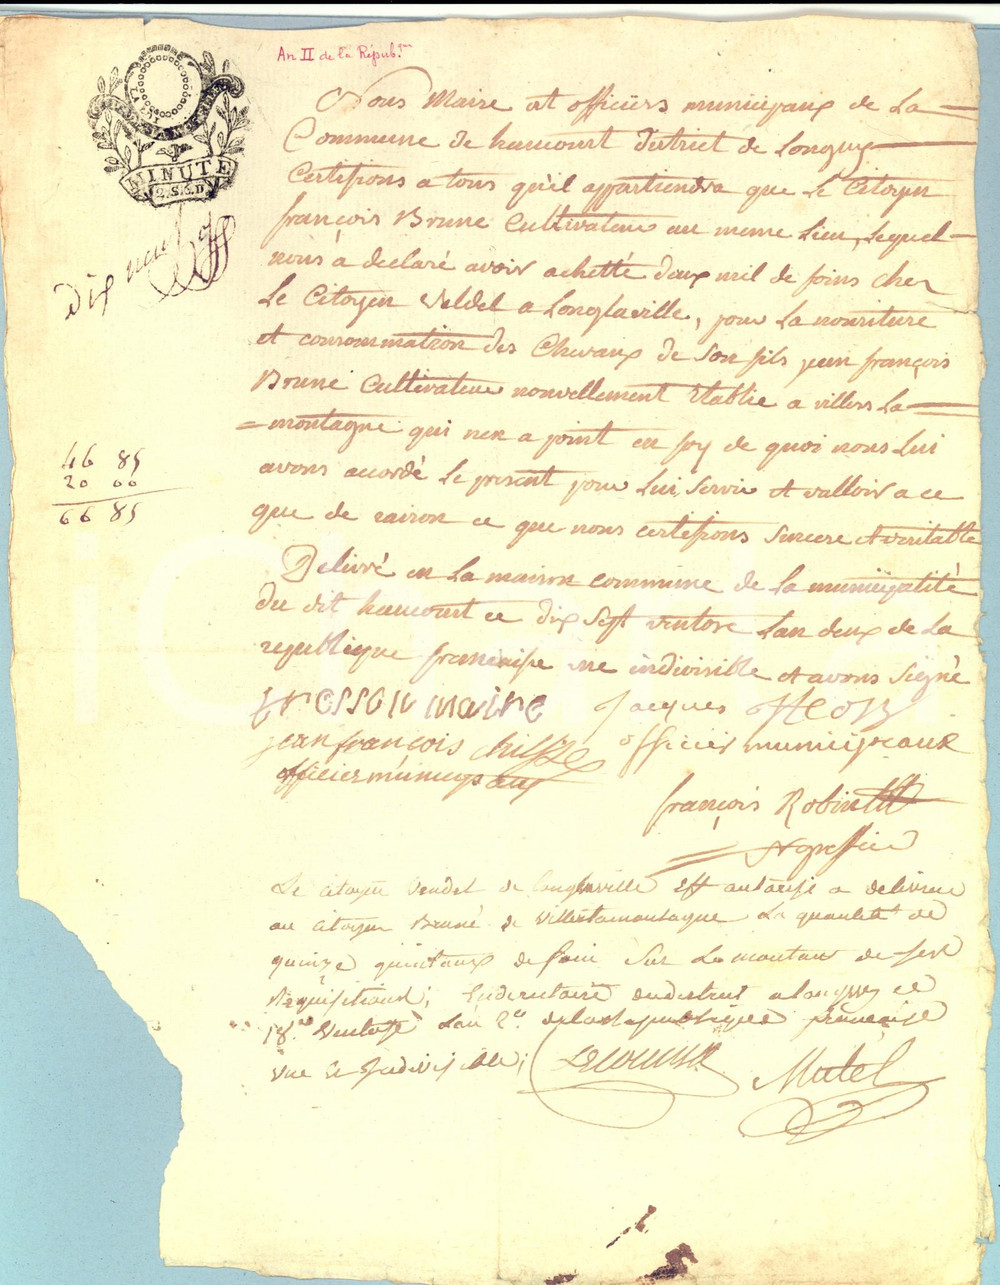 An II de la Républ.
MINUTE
2.S.6.D
dix neuf
Nous Maire et officiers municipaux de La
Commune de haucourt District de Longwy
Certifions a tous qu'il appartiendra que Le Citoyen
françois Brune Cultivateur au meme Lieu, Lequel
nous à declaré avoir achetté deux mil de foins cher
Le Citoyen Veldel a Longlaville, pour La nourriture
et consommation des Chevaux de son fils jean françois
Brune Cultivateur nouvellement Etablie a villers La
montagne qui nen a point en foy de quoi nous Lui
avons accordé Le present pour Lui Servir et valloir a ce
que de raison ce que nous certifions Sincere et veritable
46 85
20 00
66 85
Delivré en La maison commune de La municipalité
du dit haucourt ce dix Sept ventose Lan deux de La
republique francaise une indivisible et avons Signé
maire Jacques
jean françois officier municipeaux
officier municipaux
françois Robin
greffier
Le citoyen Vendel de Longlaville Est autorisé a delivrer
au citoyen Brune de Villerlamontagne La quantité de
quinze quintaux de foin Sur Le montant de ses
Requisitions; Ledirectoire dudistrict a longwy ce
18.me Ventose L'an 2.e delarepublique francaise
une et Indivisible;
Mutel